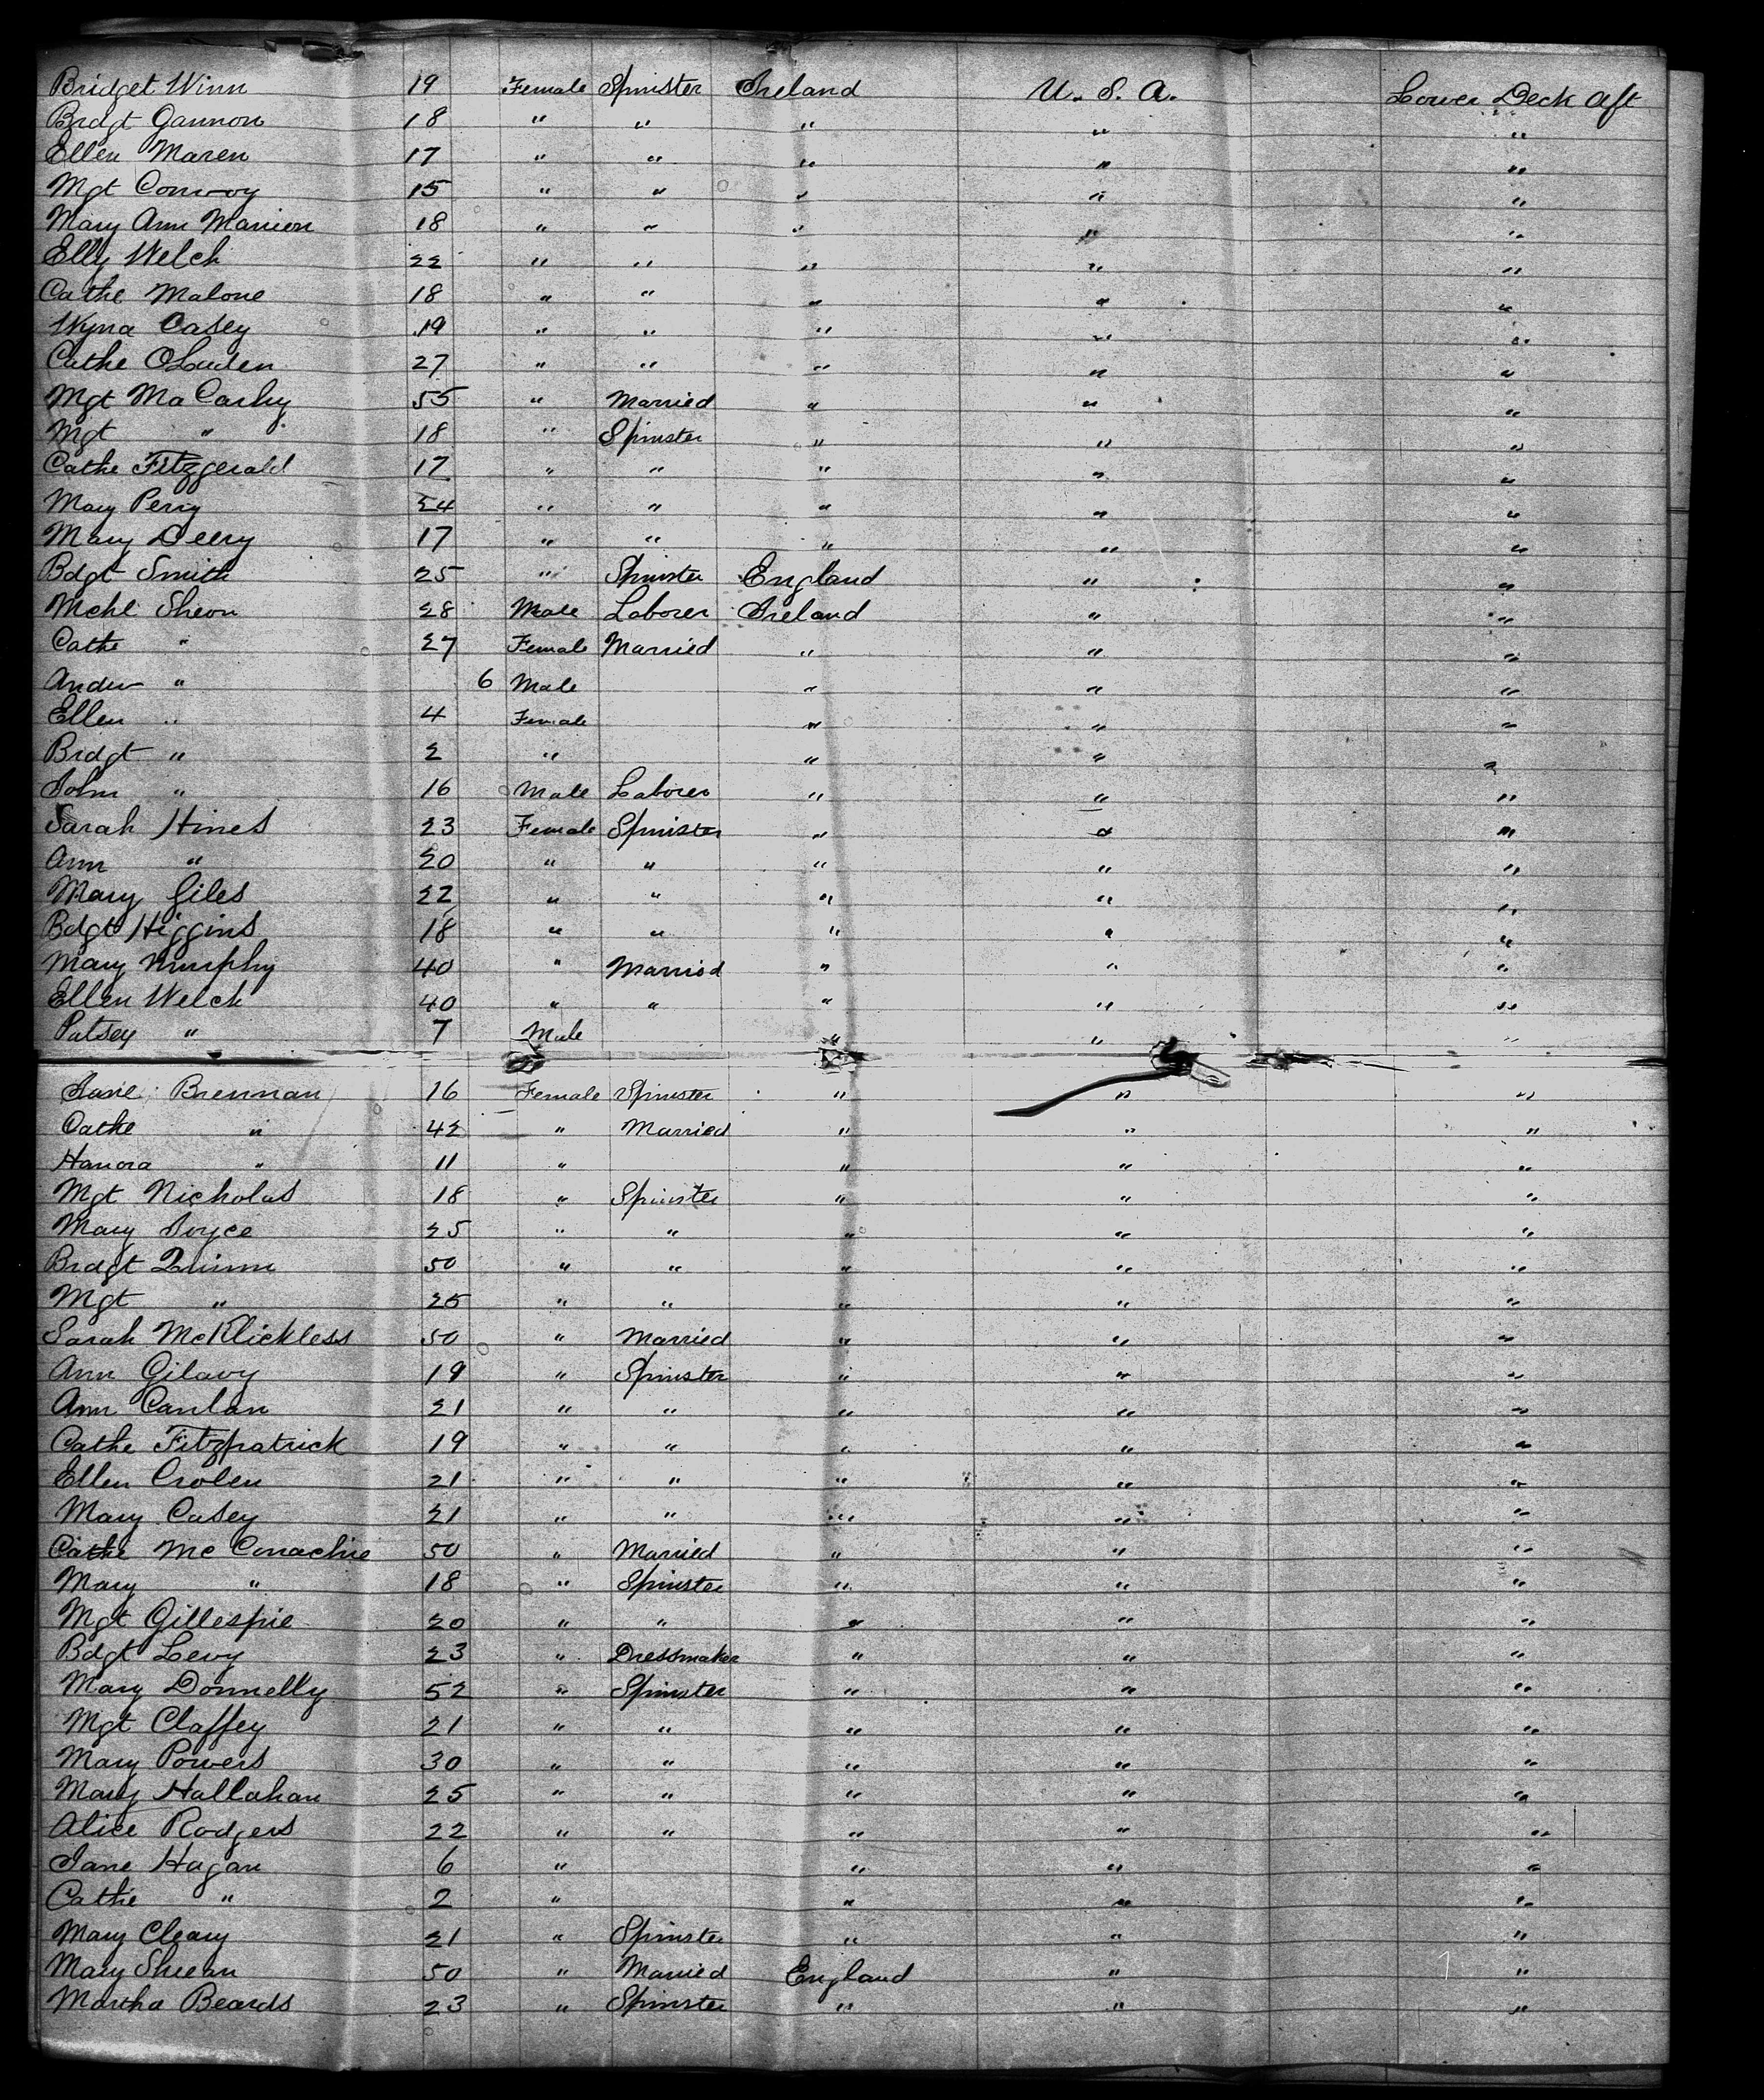 Bridget Winn 19 Female Spinster Ireland U. S. A. Lower Deck Aft
Brdgt Gannon 18 " " " " "
Ellen Maren 17 " " " " "
Mgt Conroy 15 " " " " "
Mary Ann Manion 18 " " " " "
Elly Welch 22 " " " " "
Cathe Malone 18 " " " " "
Wyna Casey 19 " " " " "
Cathe OLauden 27 " " " " "
Mgt MaCarhy 55 " Married " " "
Mgt " 18 " Spinster " " "
Cathe Fitzgerald 17 " " " " "
Mary Perry 24 " " " " "
Mary Deery 17 " " " " "
Bdgt Smith 25 " Spinster England " "
Mchl Sheon 28 Male Laborer Ireland " "
Cathe " 27 Female Married " " "
Andw " 6 Male " " "
Ellen " 4 Female " " "
Brdgt " 2 " " " "
John " 16 Male Laborer " " "
Sarah Hines 23 Female Spinster " " "
Ann " 20 " " " " "
Mary Giles 22 " " " " "
Bdgt Higgins 18 " " " " "
Mary Murphy 40 " Married " " "
Ellen Welch 40 " " " " "
Patsey " 7 Male " " "
Jane Brennan 16 Female Spinster " " "
Cathe " 42 " Married " " "
Hanora " 11 " " " "
Mgt Nicholas 18 " Spinster " " "
Mary Joyce 25 " " " " "
Brdgt Quinn 50 " " " " "
Mgt " 25 " " " " "
Sarah McKlickless 50 " Married " " "
Ann Gilavy 19 " Spinster " " "
Ann Canlan 21 " " " " "
Cathe Fitzpatrick 19 " " " " "
Ellen Crolen 21 " " " " "
Mary Casey 21 " " " " "
Cathe McConachie 50 " Married " " "
Mary " 18 " Spinster " " "
Mgt Gillespie 20 " " " " "
Bdgt Levy 23 " Dressmaker " " "
Mary Donnelly 52 " Spinster " " "
Mgt Claffey 21 " " " " "
Mary Powers 30 " " " " "
Mary Hallahan 25 " " " " "
Alice Rodgers 22 " " " " "
Jane Hagan 6 " " " "
Cathe " 2 " " " "
Mary Cleary 21 " Spinster " " "
Mary Sheean 50 " Married England " "
Martha Beards 23 " Spinster " " "